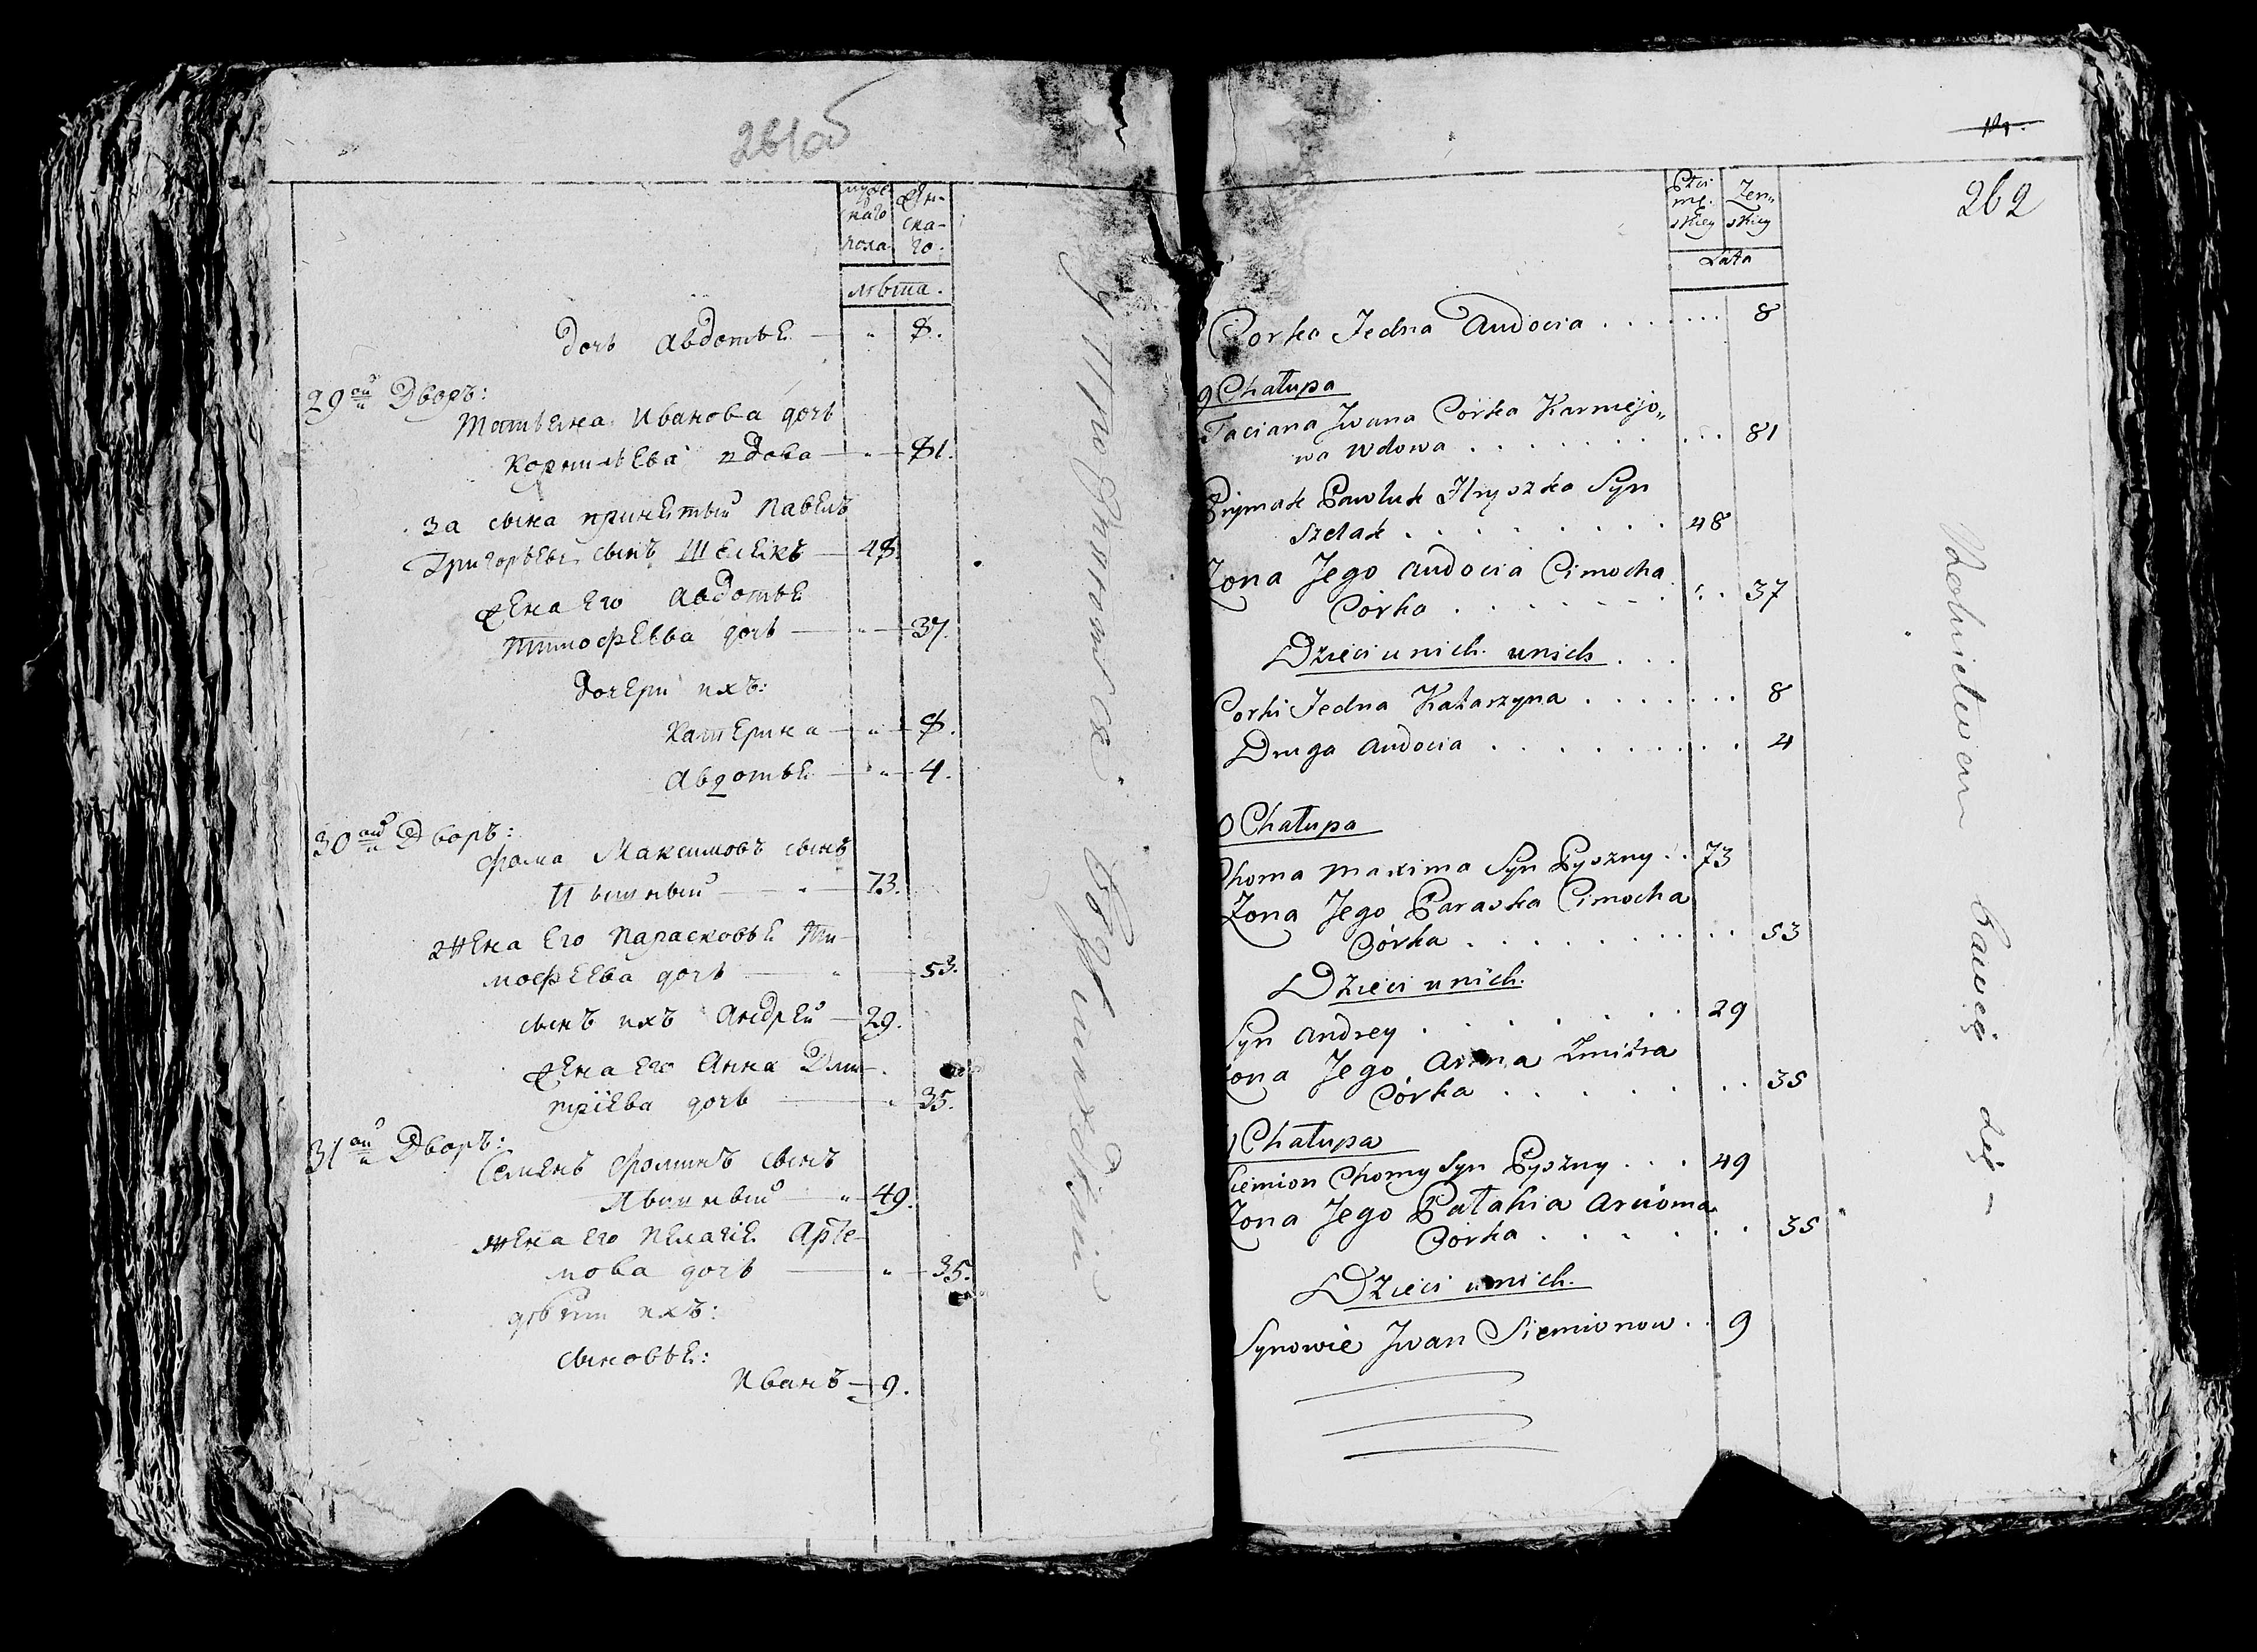 261об
мужескаго пола
женскаго.
лѣта.
дочь Авдотья — " 8.
29ой Дворъ:
Татьяна Иванова дочь
Корнильева вдова — " — 81.
за сына принятый Павелъ
Григорьевъ сынъ Шелекъ — 48.
жена его Авдотья
Тимофѣева дочь — " — 37.
дочери ихъ:
Катерина — " — 8.
Авдотья — " — 4.
30ой Дворъ:
Фома Максимовъ сынъ
Пышный — " — 73.
жена его Парасковья Ти-
мофеева дочь — " — 53.
сынъ ихъ Андрей — 29.
жена его Анна Дми-
тріева дочь — " 35.
31ой Дворъ:
Семенъ Фоминъ сынъ
Пышный — " 49.
жена его Пелагія Арте-
мова дочь — " — 35.
дѣти ихъ:
сыновья:
Иванъ — 9.
262
Płci mę. skiey
Żen„ skiey
Lata
Corka Jedna Audocia . . . . . . . 8
9 Chałupa
Taciana Jwana Córka Karniejo„
wa Wdowa . . . . . . . . . . 81
Prymak Pawluk Hryszka Syn
Szelak . . . . . . . . . 48
Zona Jego Audocia Cimocha
Córka . . . . . . . . . 37
Dzieci u nich. unich . . .
Corki Jedna Katarzyna . . . . . . . 8
Druga Audocia . . . . . . . . . 4
0 Chałupa
Choma Maxima Syn Pyszny . . 73
Zona Jego Paraska Cimocha
Córka . . . . . . . . . . 53
Dzieci u nich.
Syn Andrey . . . . . . . . 29
Zona Jego Anna Zmitra
Córka . . . . . . . 35
1 Chałupa
Siemion Chomy Syn Pyszny . . . 49
Zona Jego Pałahia Arcioma
Córka . . . . . . 35
Dzieci u nich.
Synowie Jwan Siemionow . . 9